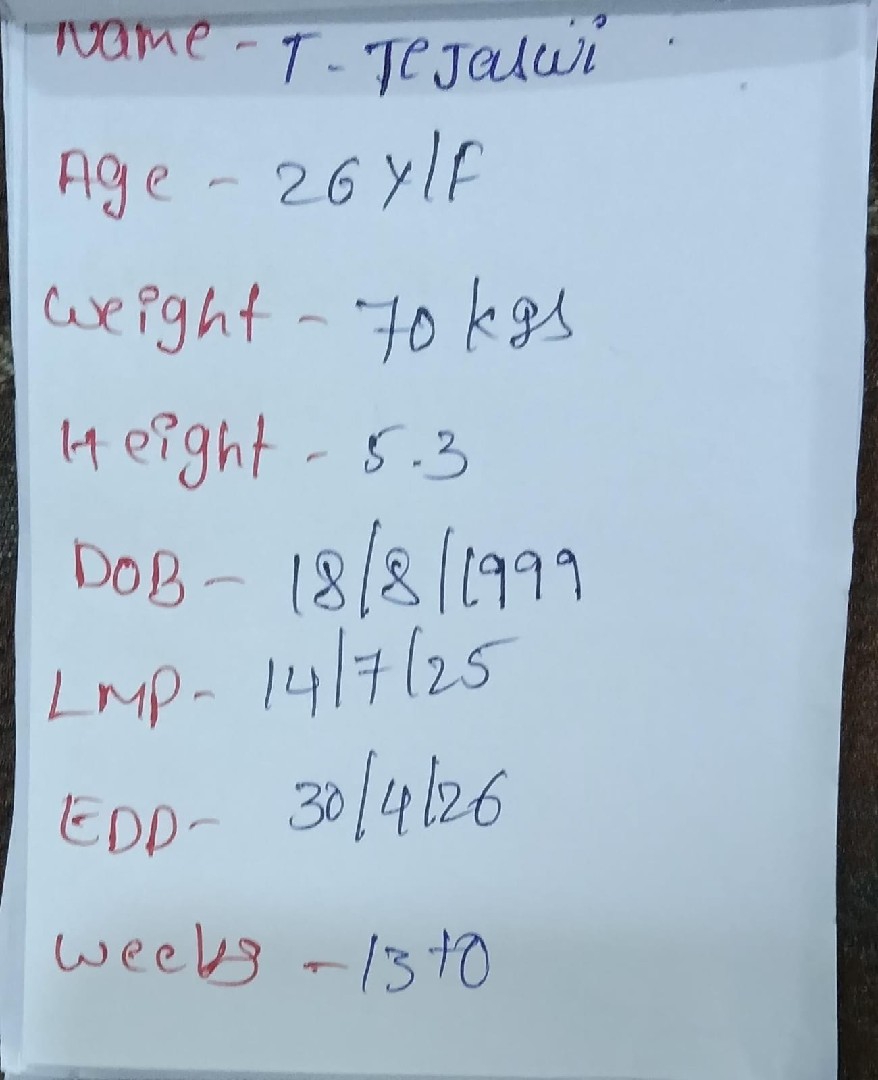 Name - T - Tejaswi
Age - 26 Y/F
Weight - 70 kgs
Height - 5.3
DOB - 18/8/1999
LMP - 14/7/25
EDD - 30/4/26
Weeks - 13+0